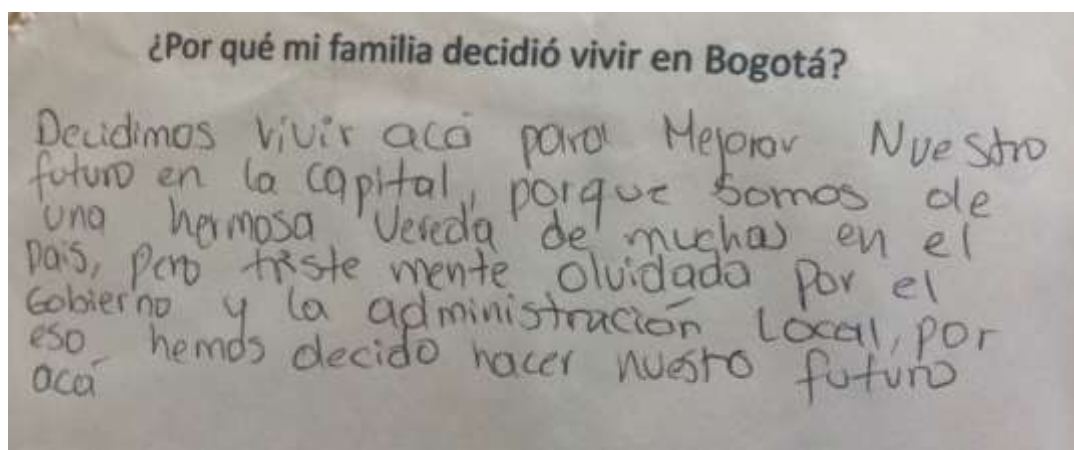 ¿Por qué mi familia decidió vivir en Bogotá?
Decidimos vivir acá para Mejorar Nuestro
futuro en la capital, porque somos de
una hermosa Vereda de muchas en el
país, pero triste mente olvidada por el
Gobierno y la administración Local, por
eso hemos decido hacer nuestro futuro
acá